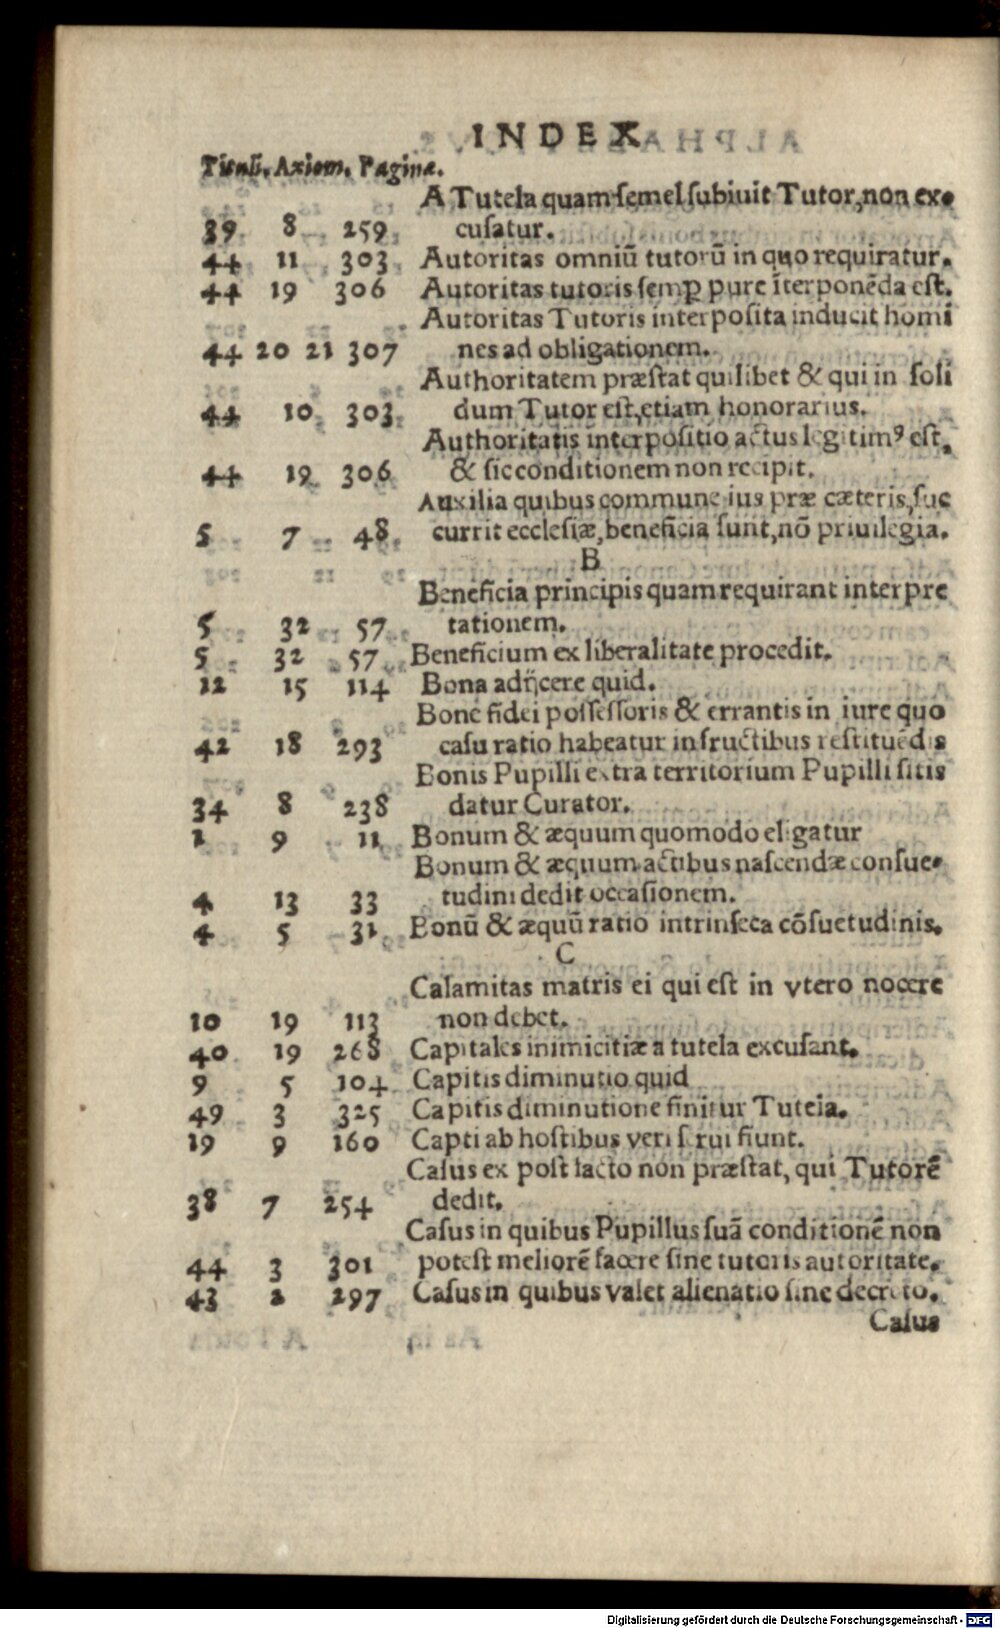 INDEX
Tituli. Axiom. Pagina.
A Tutela quam semel subiuit Tutor, non ex-
39 8 259 cusatur.
44 11 303 Autoritas omniū tutorū in quo requiratur.
44 19 306 Autoritas tutoris semꝑ pure īterponēda est.
Autoritas Tutoris interposita inducit homi
44 20 21 307 nes ad obligationem.
Authoritatem præstat quilibet & qui in soli
44 10 303 dum Tutor est, etiam honorarius.
Authoritatis interpositio actus legitimꝰ est,
44 19 306 & sic conditionem non recipit.
Auxilia quibus commune ius præ cæteris, suc
5 7 48 currit ecclesiæ, beneficia sunt, nō priuilegia.
B
Beneficia principis quam requirant interpre
5 32 57 tationem.
5 32 57 Beneficium ex liberalitate procedit.
12 15 114 Bona adijcere quid.
Bone fidei possessoris & errantis in iure quo
42 18 293 casu ratio habeatur in fructibus restituēdis
Bonis Pupilli extra territorium Pupilli sitis
34 8 238 datur Curator.
1 9 11 Bonum & æquum quomodo eligatur
Bonum & æquum actibus nascendæ consue-
4 13 33 tudini dedit occasionem.
4 5 31 Bonū & æquū ratio intrinseca cōsuetudinis.
C
Calamitas matris ei qui est in vtero nocere
10 19 113 non debet.
40 19 268 Capitales inimicitiæ a tutela excusant.
9 5 104 Capitis diminutio quid
49 3 325 Capitis diminutione finitur Tutela.
19 9 160 Capti ab hostibus veri serui fiunt.
Casus ex post facto non præstat, qui Tutorē
38 7 254 dedit.
Casus in quibus Pupillus suā conditionē non
44 3 301 potest meliorē facere sine tutoris autoritate.
43 2 297 Casus in quibus valet alienatio sine decreto.
Casus
Digitalisierung gefördert durch die Deutsche Forschungsgemeinschaft - DFG